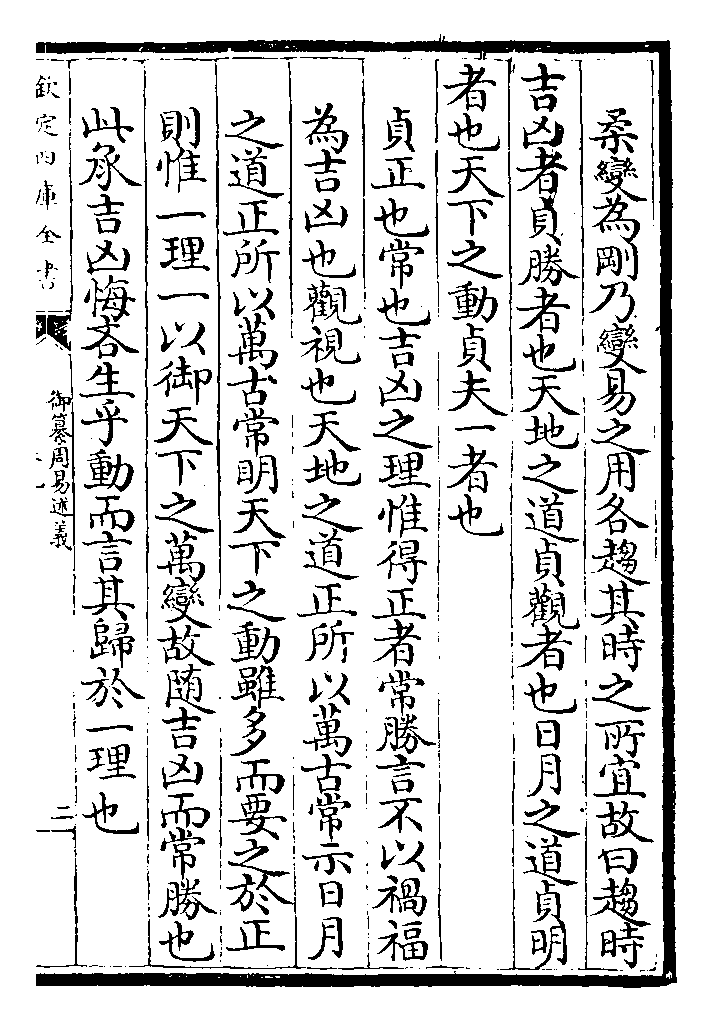 柔變為剛乃變易之用各趨其時之所宜故曰趨時
吉凶者貞勝者也天地之道貞觀者也日月之道貞明
者也天下之動貞夫一者也
貞正也常也吉凶之理惟得正者常勝言不以禍福
為吉凶也觀視也天地之道正所以萬古常示日月
之道正所以萬古常明天下之動雖多而要之於正
則惟一理一以御天下之萬變故随吉凶而常勝也
此承吉凶悔吝生乎動而言其歸於一理也
欽定四庫全書
御纂周易述義
二